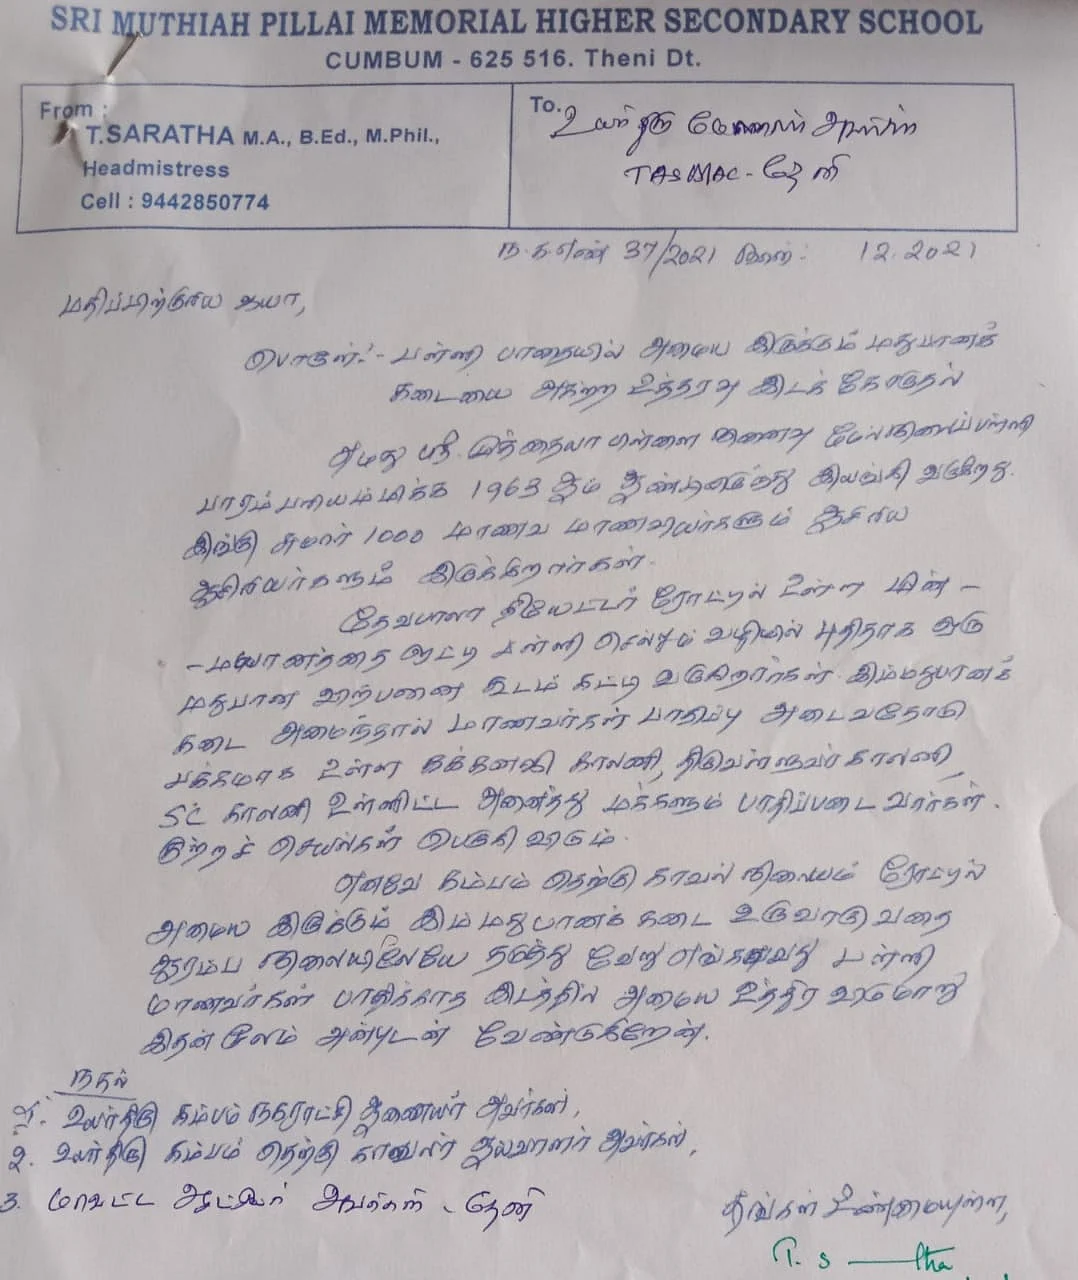 SRI MUTHIAH PILLAI MEMORIAL HIGHER SECONDARY SCHOOL
CUMBUM - 625 516. Theni Dt.
From :
T.SARATHA M.A., B.Ed., M.Phil.,
Headmistress
Cell : 9442850774
To.
உயர்திரு மேலாளர் அவர்கள்
TASMAC - தேனி
ந.க.எண் 37/2021 நாள்: 12.2021
மதிப்பிற்குரிய ஐயா,
பொருள்:- பள்ளி பாதையில் அமைய இருக்கும் மதுபானக்
கடையை அகற்ற உத்தரவு இடக் கோருதல்
எமது ஸ்ரீ முத்தையா பிள்ளை நினைவு மேல்நிலைப்பள்ளி
பாரம்பரியம்மிக்க 1963 ஆம் ஆண்டிலிருந்து இயங்கி வருகிறது.
இங்கு சுமார் 1000 மாணவ மாணவியர்களும் ஆசிரிய
ஆசிரியர்களும் இருக்கிறார்கள்.
தேவபாலா தியேட்டர் ரோட்டில் உள்ள மின் -
- மயானத்தை ஒட்டி பள்ளி செல்லும் வழியில் புதிதாக ஒரு
மதுபான விற்பனை கூடம் கட்டி வருகிறார்கள். இம்மதுபானக்
கடை அமைந்தால் மாணவர்கள் பாதிப்பு அடைவதோடு
பக்கமாக உள்ள கக்கன்ஜி காலனி, திருவள்ளுவர் காலனி,
SC காலனி உள்ளிட்ட அனைத்து மக்களும் பாதிப்படைவார்கள்.
குற்றச் செயல்கள் பெருகி விடும்.
எனவே கம்பம் தெற்கு காவல் நிலையம் ரோட்டில்
அமைய இருக்கும் இம்மதுபானக் கடை உருவாகுவதை
ஆரம்ப நிலையிலேயே தடுத்து வேறு எங்காவது பள்ளி
மாணவர்கள் பாதிக்காத இடத்தில் அமைய உத்திரவிடுமாறு
இதன் மூலம் அன்புடன் வேண்டுகிறேன்.
நகல்
1. உயர்திரு கம்பம் நகராட்சி ஆணையர் அவர்கள்,
2. உயர்திரு கம்பம் தெற்கு காவலர் ஆய்வாளர் அவர்கள்,
3. மாவட்ட ஆட்சியர் அவர்கள் - தேனி
தங்கள் உண்மையுள்ள,